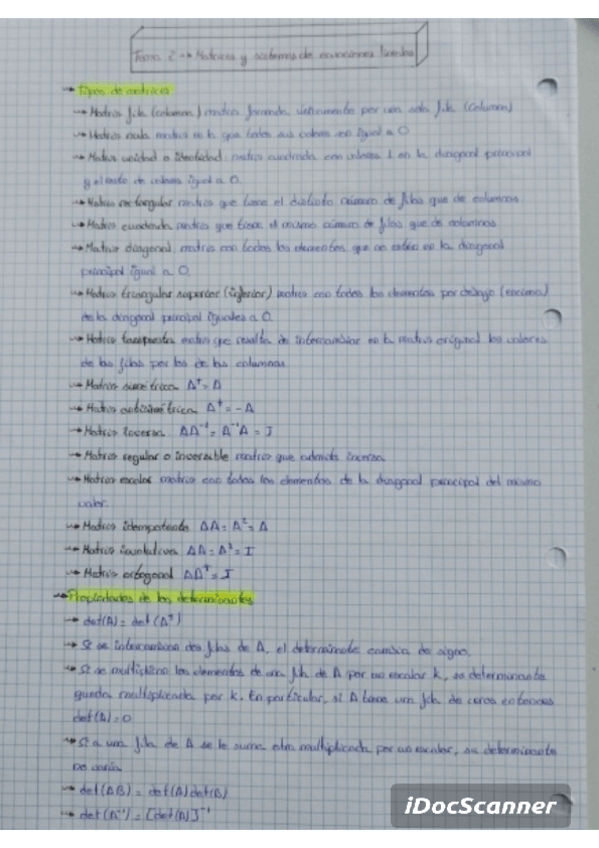 Tema 2 → Matrices y sistemas de ecuaciones lineales
→ Tipos de matrices
→ Matriz fila (columna) matriz formada únicamente por una sola fila (columna)
→ Matriz nula matriz en la que todos sus valores son igual a 0.
→ Matriz unidad o identidad, matriz cuadrada con valores 1 en la diagonal principal
y el resto de valores igual a 0.
→ Matriz rectangular matriz que tiene el distinto número de filas que de columnas.
→ Matriz cuadrada matriz que tiene el mismo número de filas que de columnas
→ Matriz diagonal, matriz con todos los elementos que no estén en la diagonal
principal igual a 0.
→ Matriz triangular superior (inferior) matriz con todos los elementos por debajo (encima)
de la diagonal principal iguales a 0.
→ Matriz transpuesta matriz que resulta de intercambiar en la matriz original los valores
de las filas por los de las columnas
→ Matriz simétrica Aᵗ = A
→ Matriz antisimétrica Aᵗ = -A
→ Matriz inversa AA⁻¹ = A⁻¹A = I
→ Matriz regular o inversible matriz que admite inversa
→ Matriz escalar matriz con todos los elementos de la diagonal principal del mismo
valor.
→ Matriz idempotente AA = A² = A
→ Matriz involutiva AA = A² = I
→ Matriz ortogonal AAᵗ = I
→ Propiedades de los determinantes
→ det(A) = det(Aᵗ)
→ Si se intercambian dos filas de A, el determinante cambia de signo.
→ Si se multiplican los elementos de una fila de A por un escalar k, su determinante
queda multiplicado por k. En particular, si A tiene una fila de ceros entonces
det(A) = 0
→ Si a una fila de A se le suma otra multiplicada por un escalar, su determinante
no varía
→ det(AB) = det(A) det(B)
→ det(A⁻¹) = [det(A)]⁻¹
iDocScanner